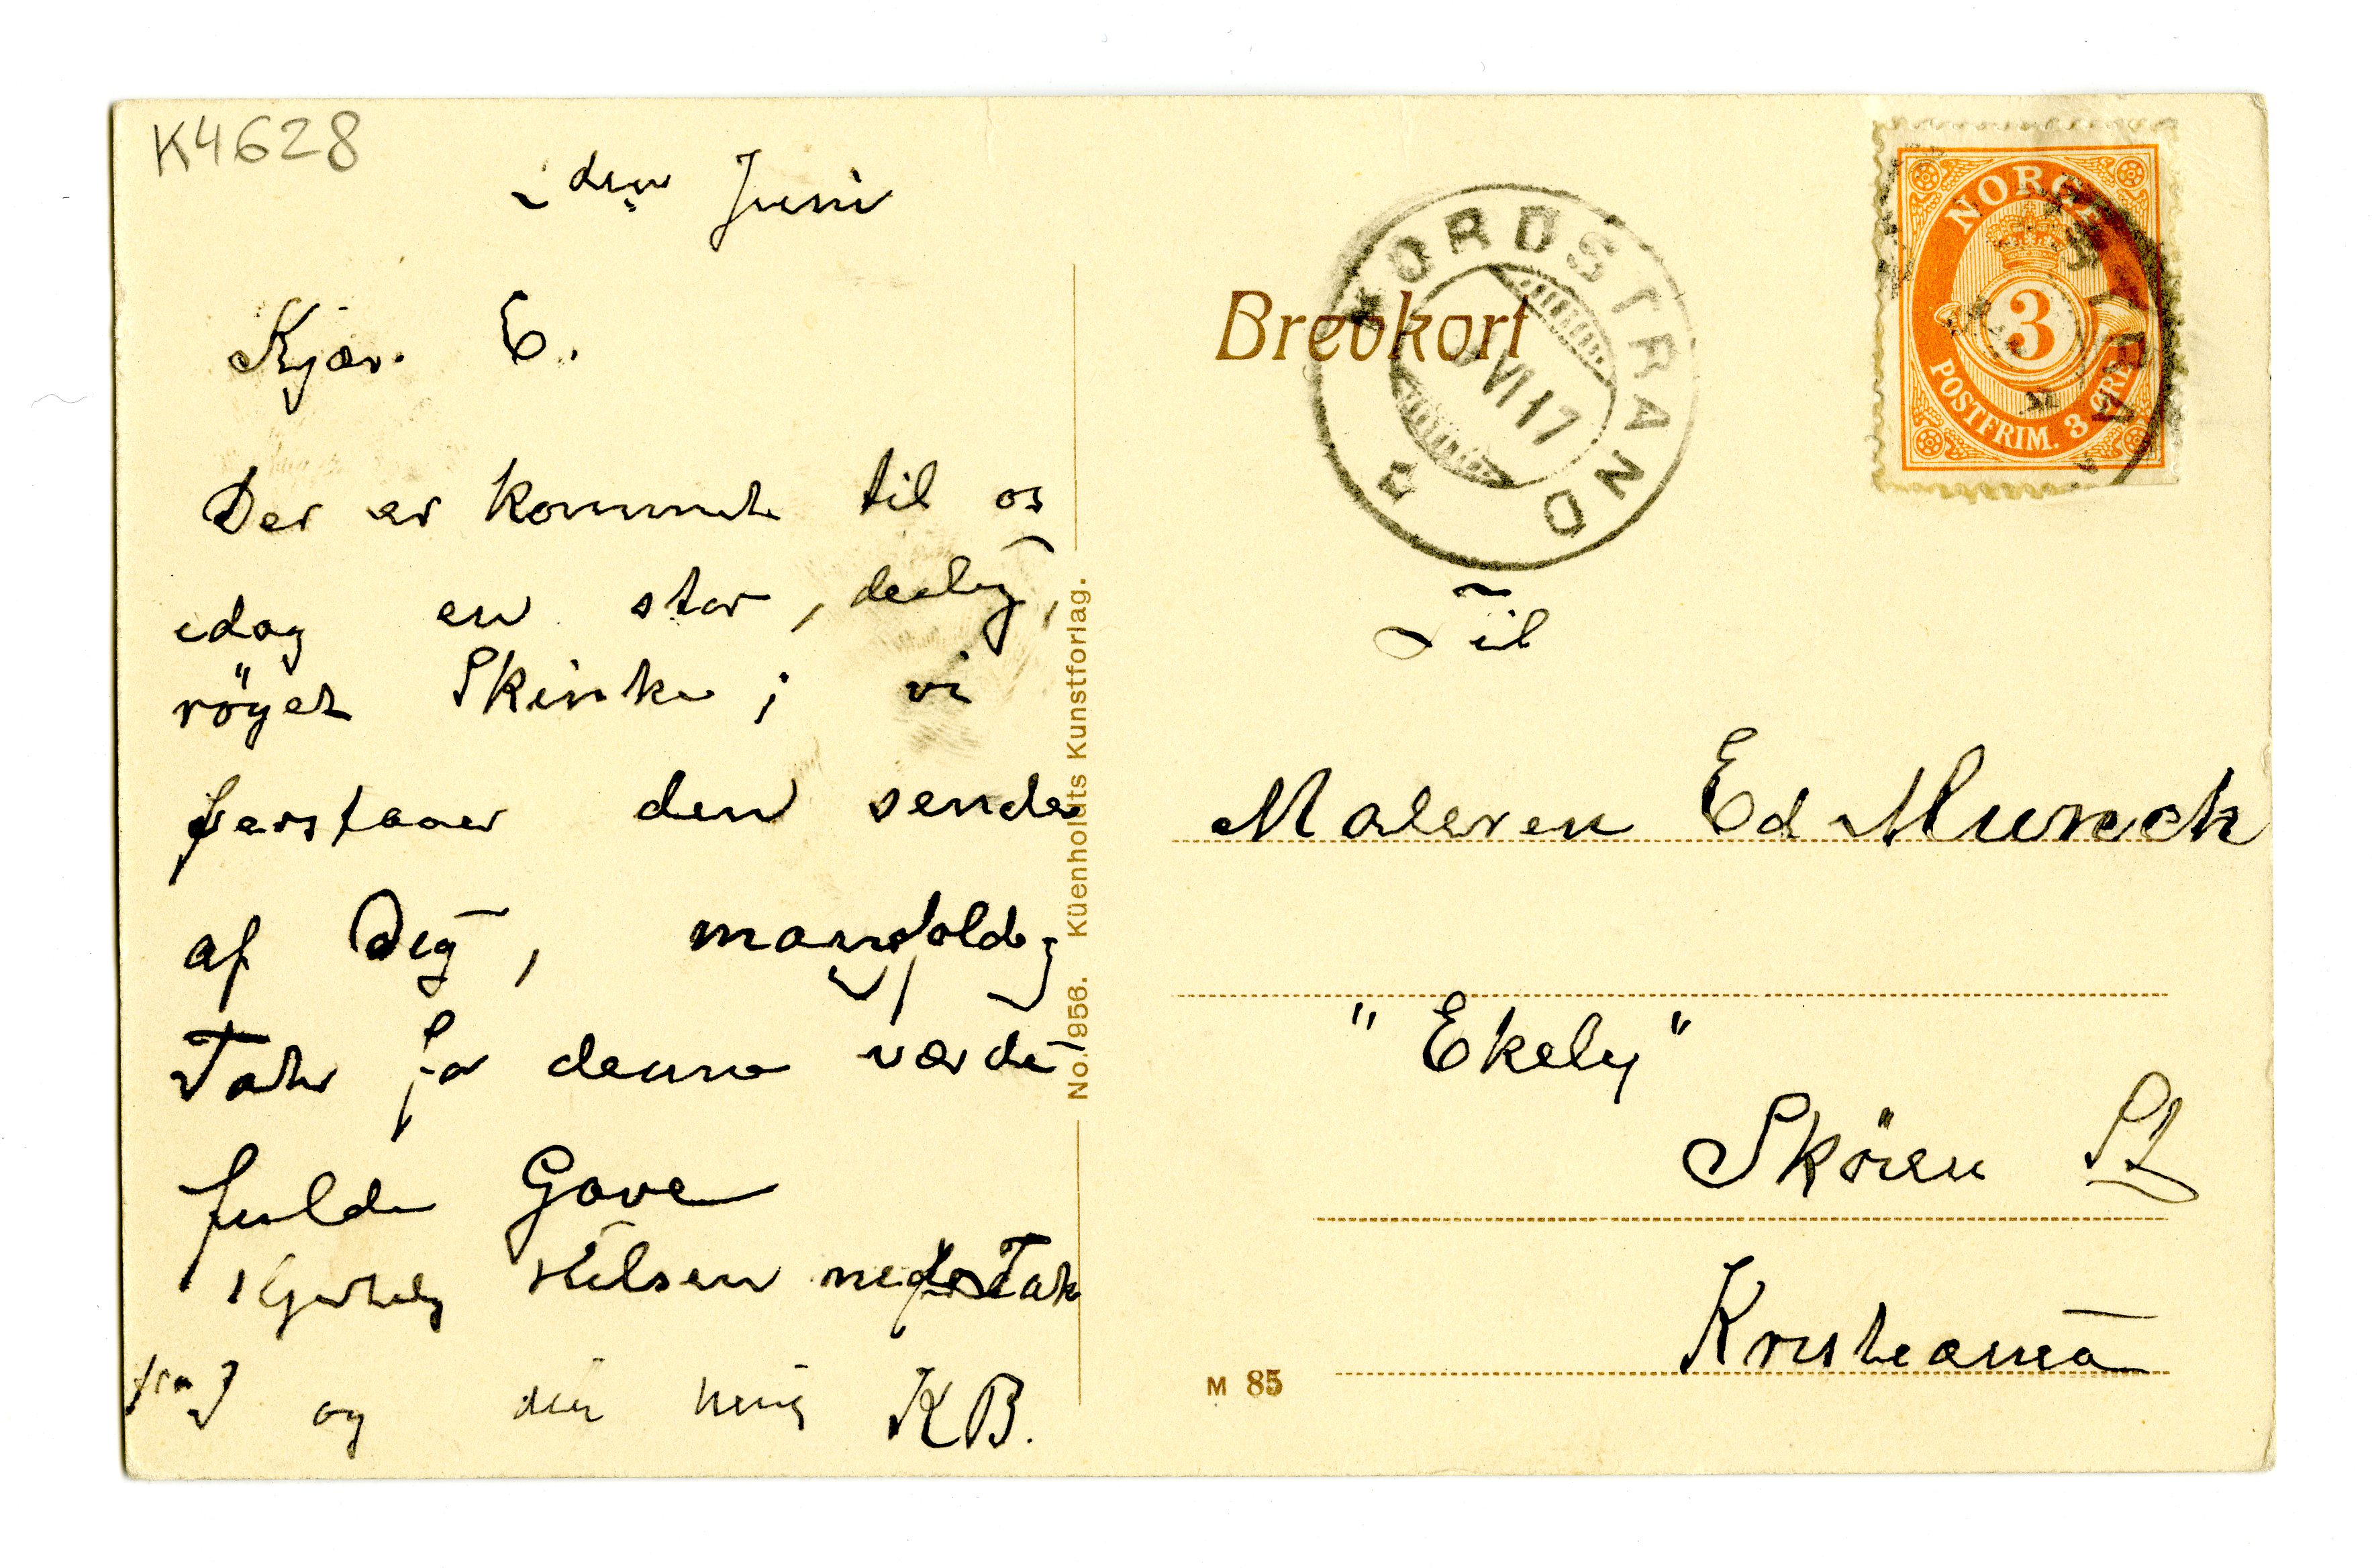 K4628
2den Juni
Kjær. E.
Der er kommet til os
idag en stor, deilig,
röget Skinke; vi
forstaaer den sendes
af Dig, mangfoldig
Tak for denne værdi
fulde Gave
Kjærlig Hilsen med Tak
fra I og din heng KB.
No. 956. Küenholdts Kunstforlag.
Brevkort
NORDSTRAND
VI 17
NORGE
3
POSTFRIM. 3 ØRE
Til
Maleren Ed Munch
"Ekely"
Sköien St
Kristiania
M 85